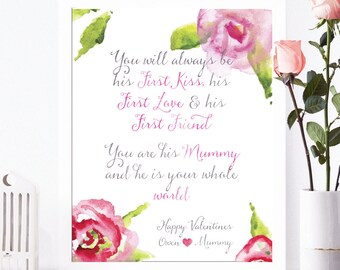 You will always be
his First Kiss, his
First Love & his
First Friend
You are his Mummy
and he is your whole
world
Happy Valentines
Owen ❤ Mummy